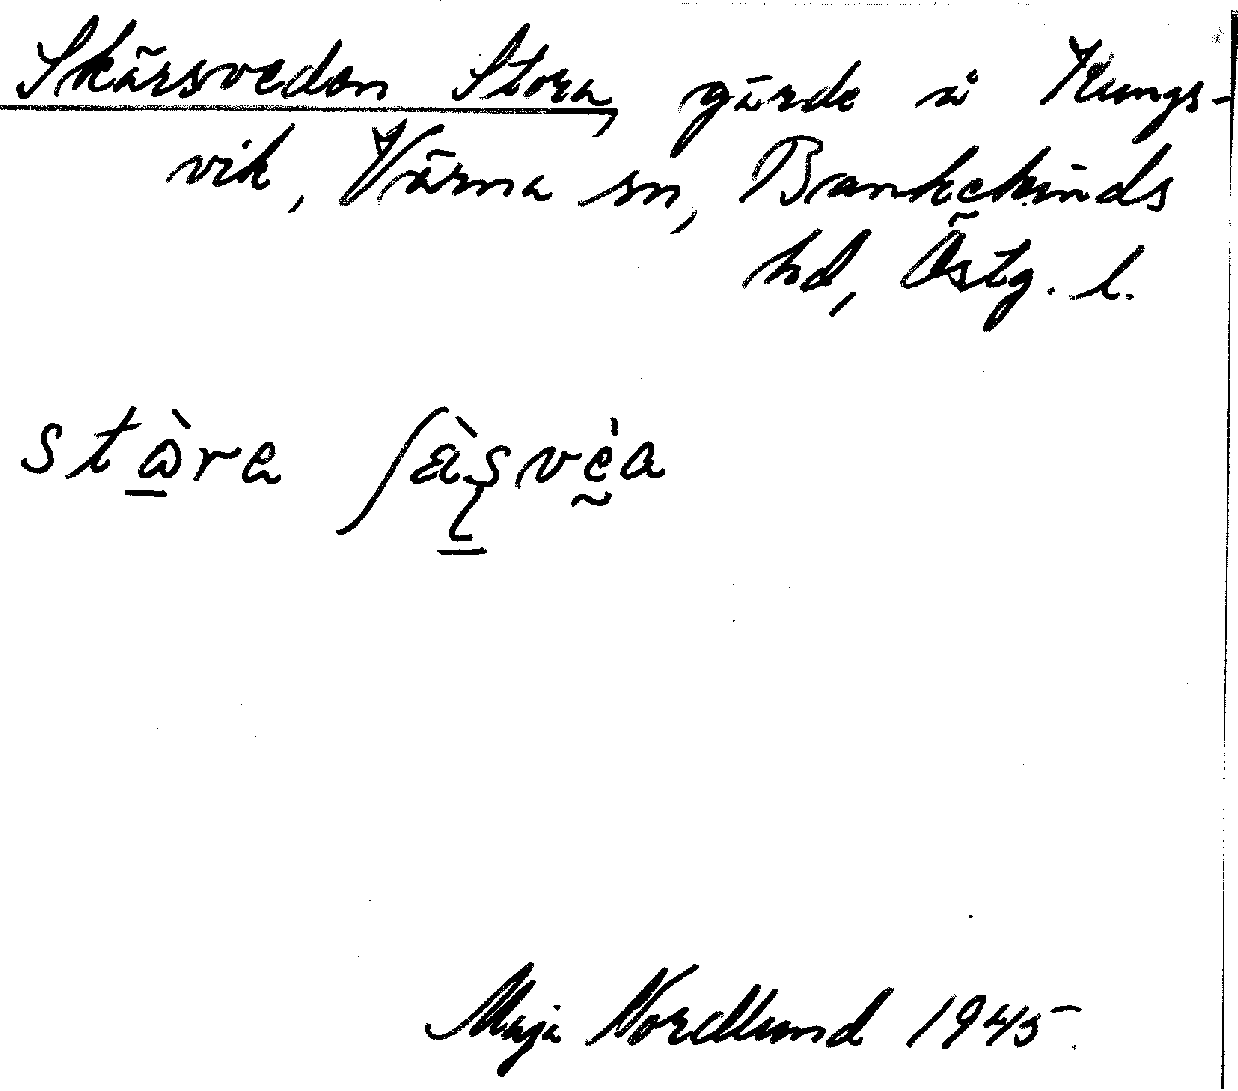 Skärsveden Stora, gärde å Kungs-
vik, Värna sn, Bankekinds
hd, Östg. l.
stàra ʃä̀ʂvèa
Maja Nordlund 1945